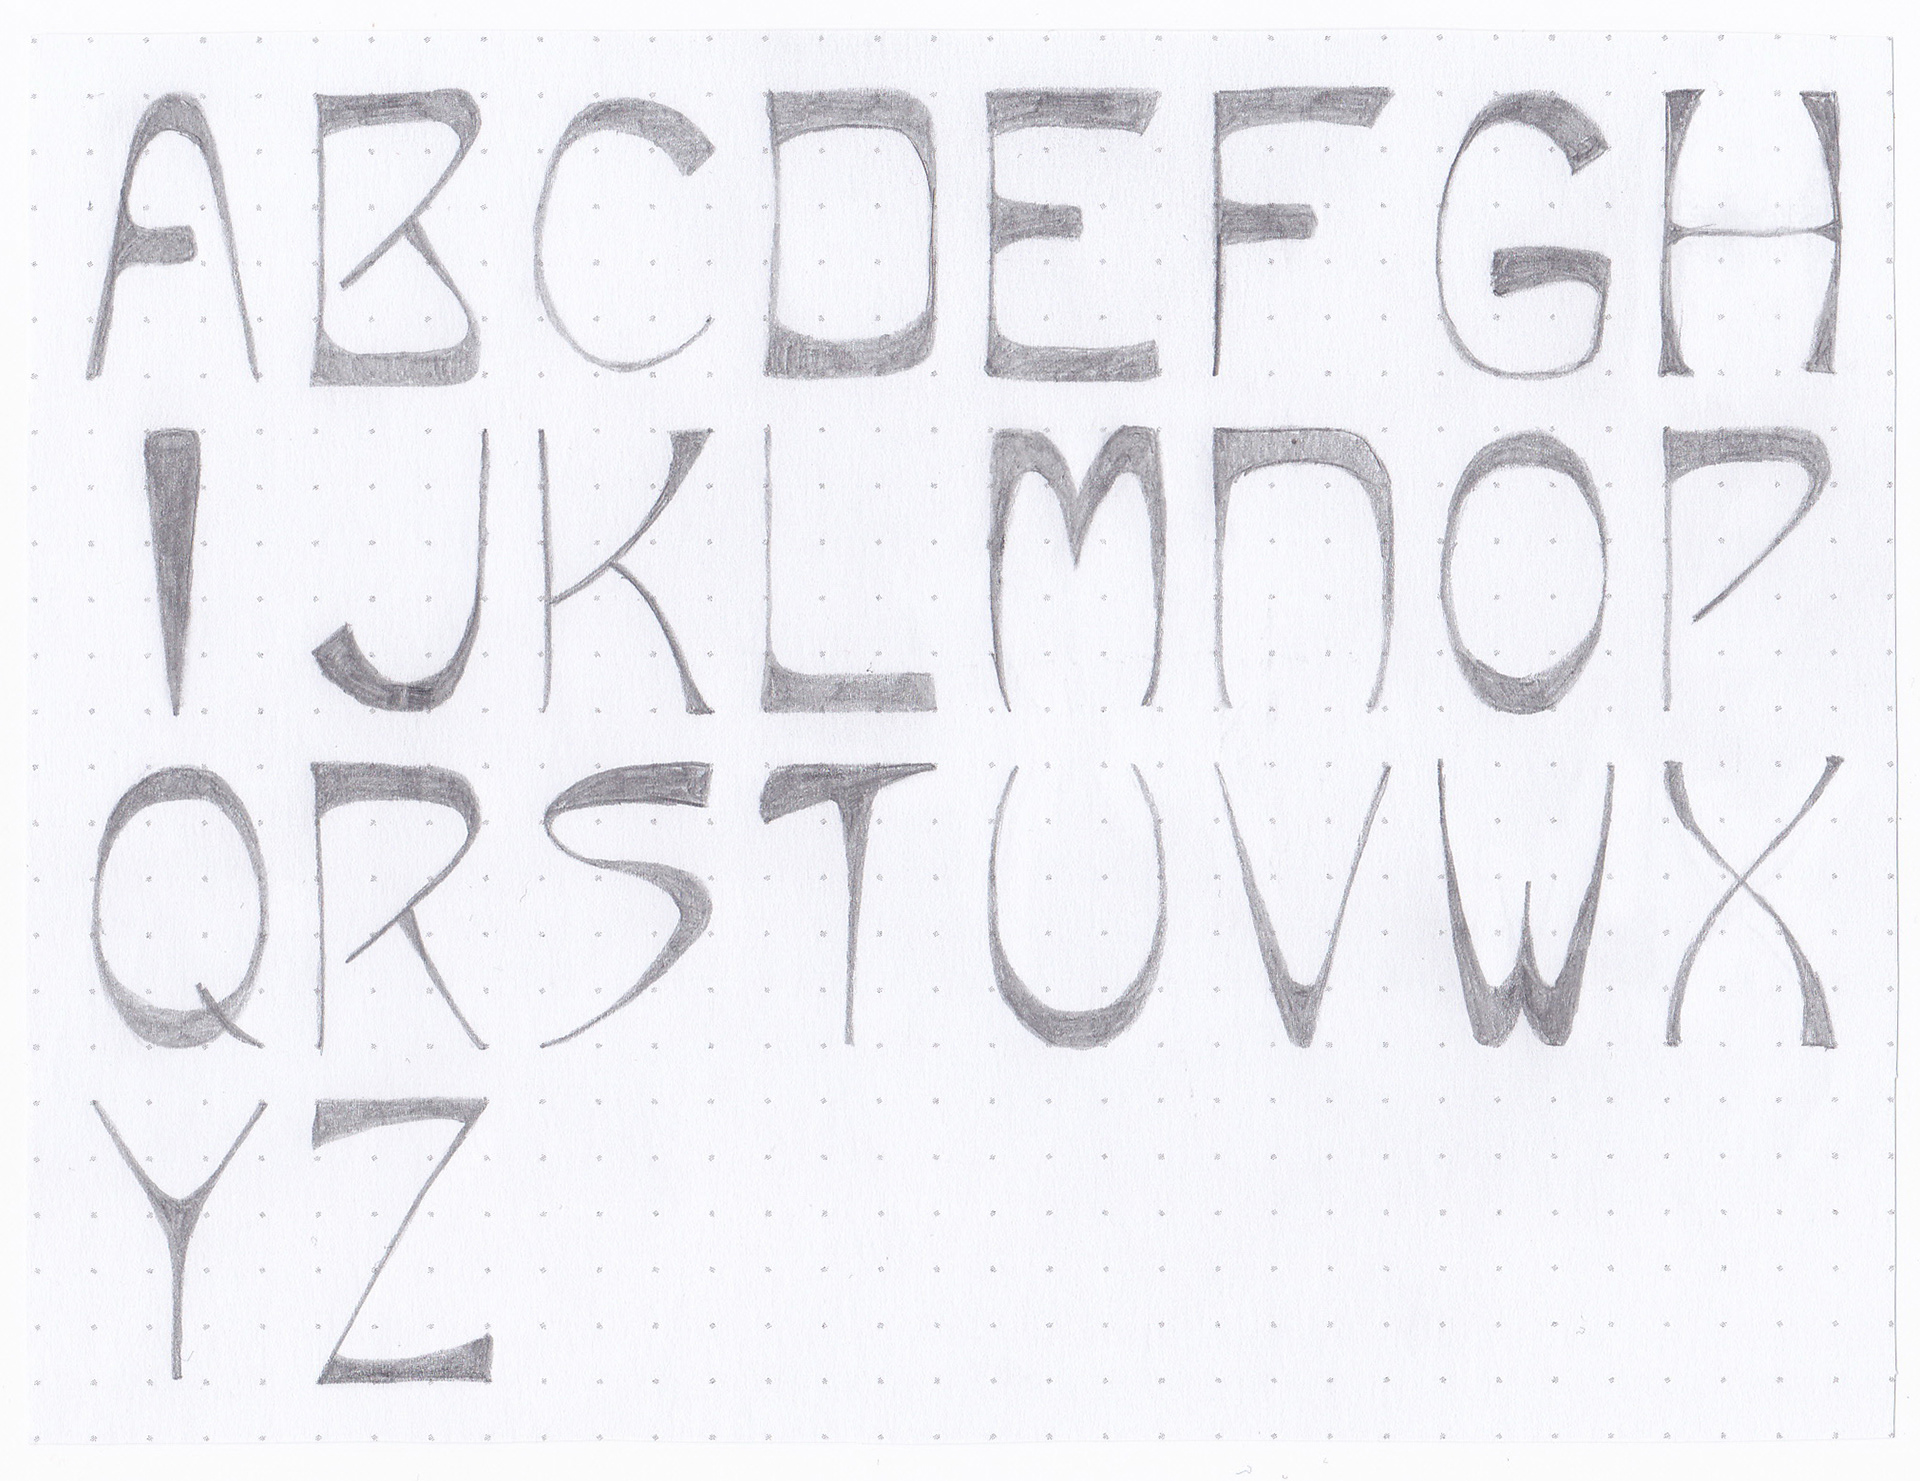 ABCDEFGH
IJKLMNOP
QRSTUVWX
YZ